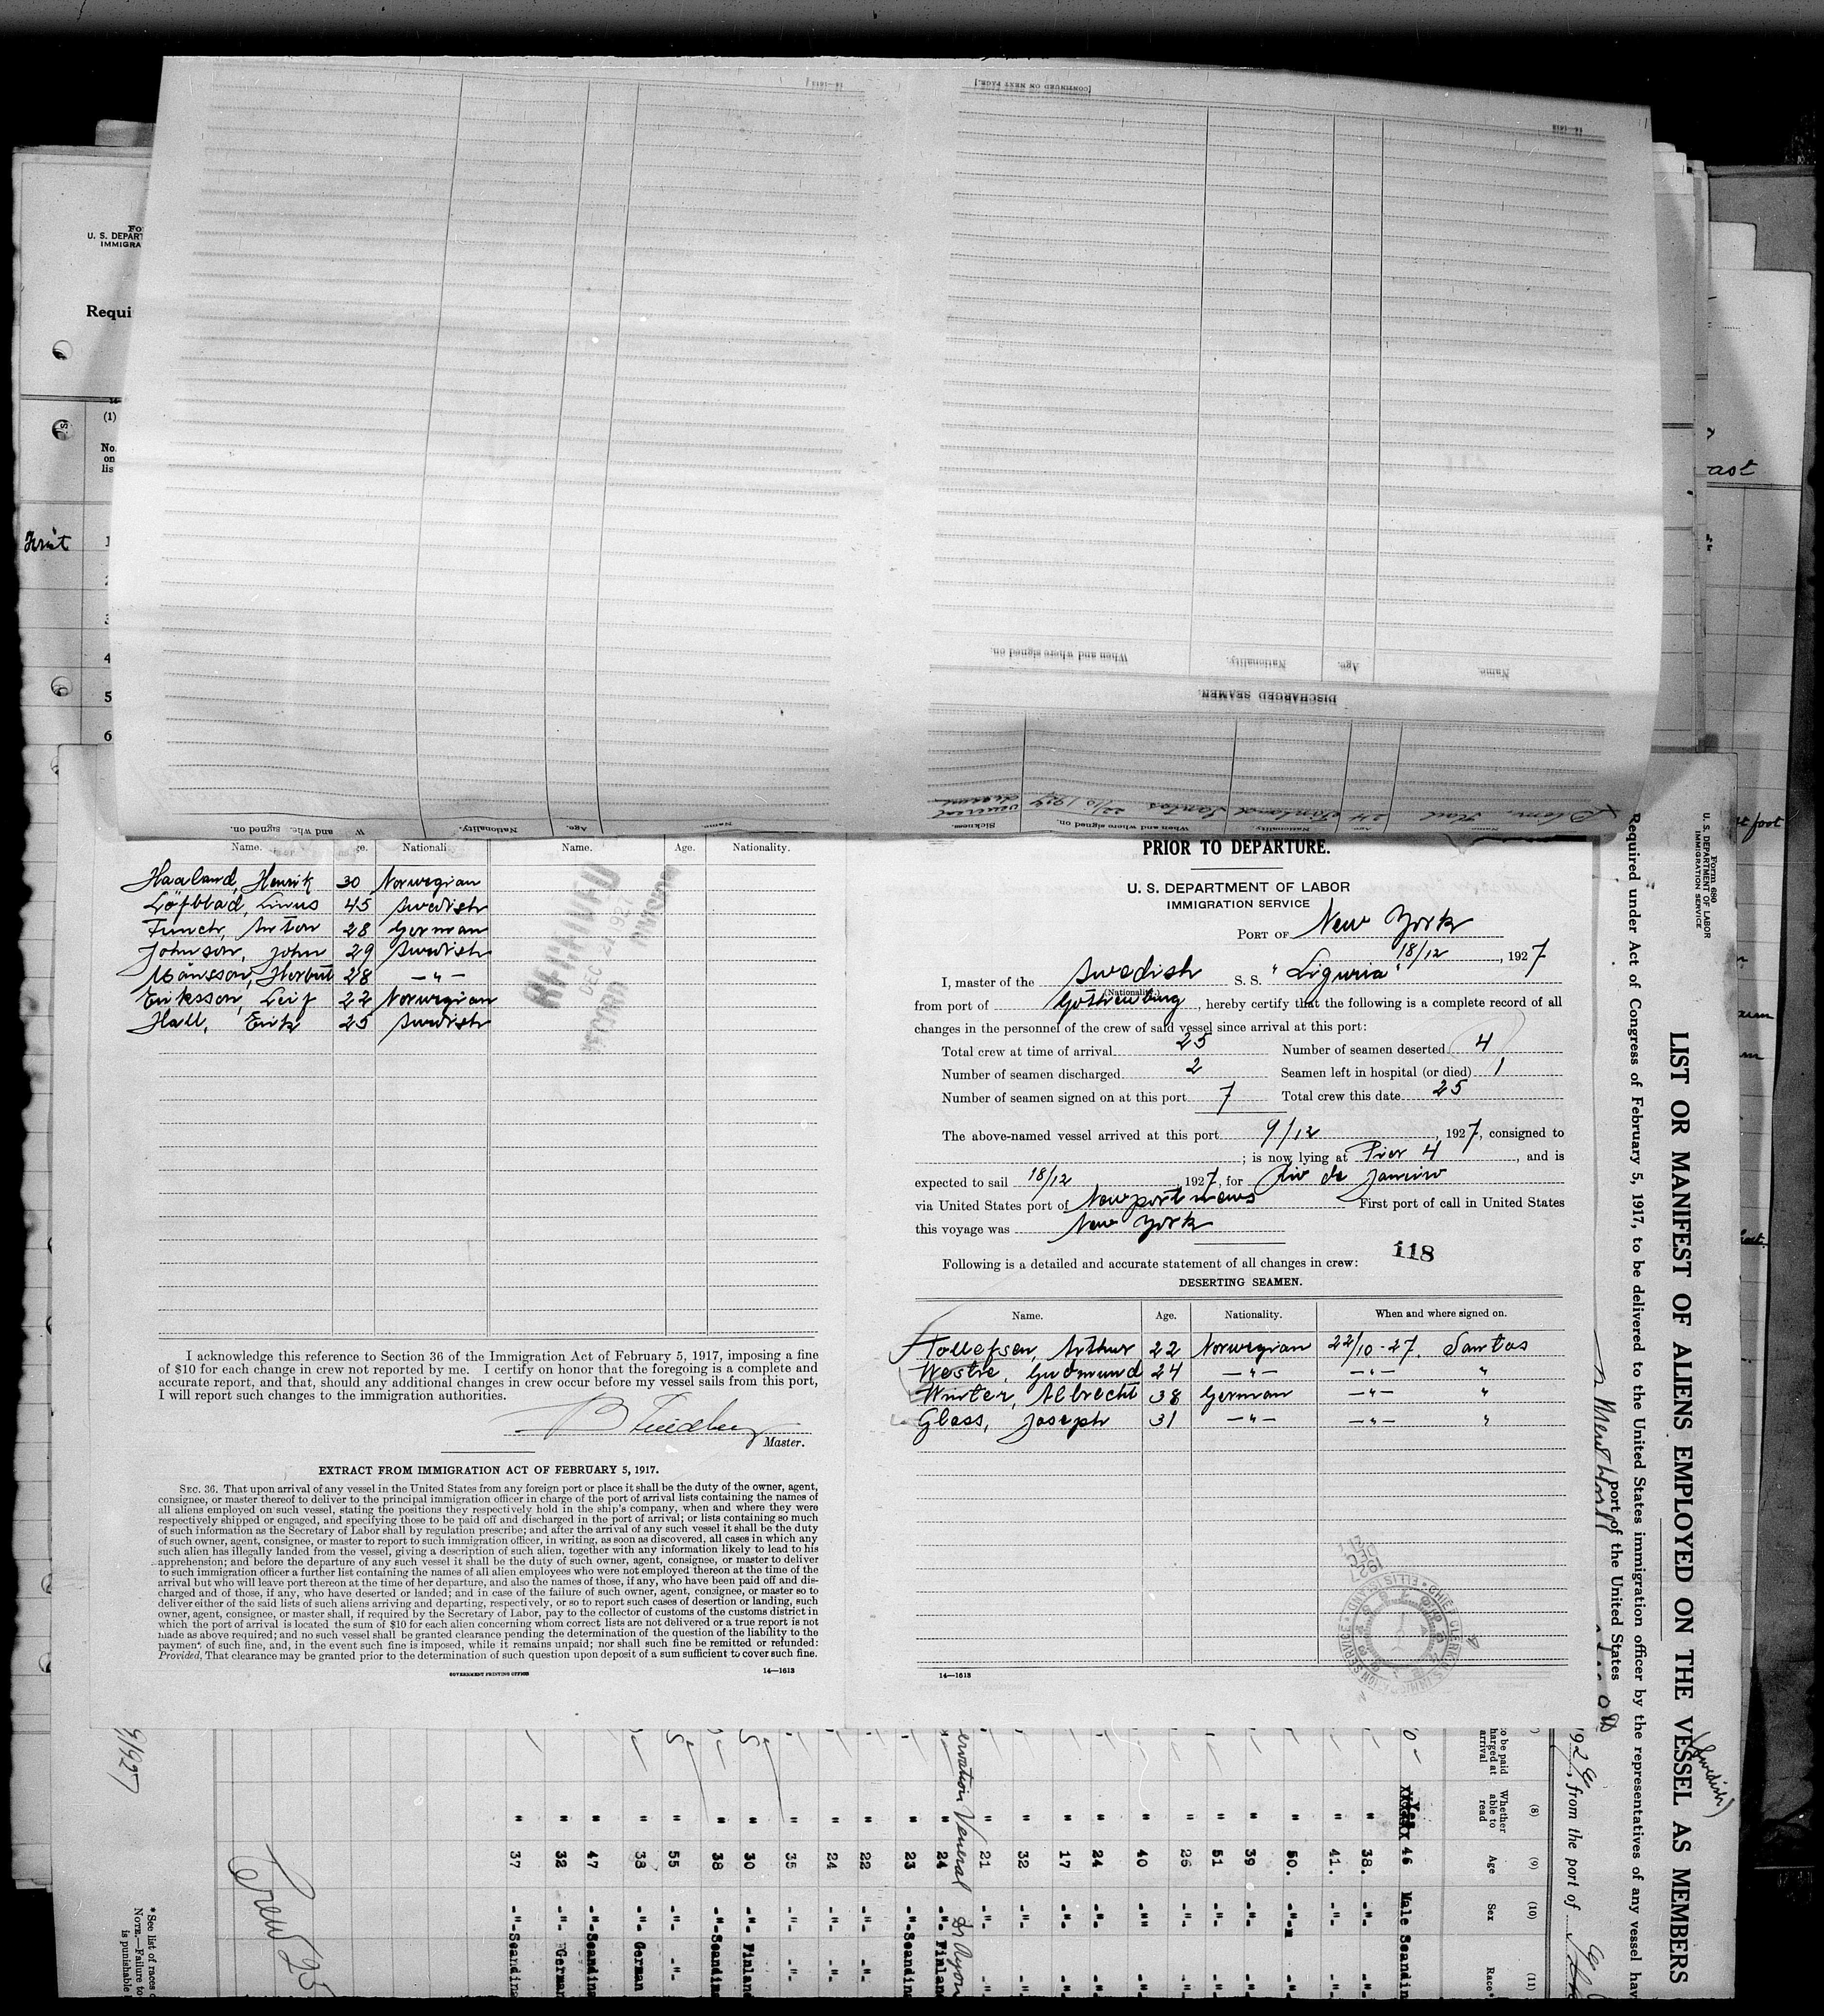 [CONTINUED ON NEXT PAGE.]
14—1613
14—1613
Name. Age. Nationality. When and where signed on.
DISCHARGED SEAMEN.
Name. Age. Nationality. When and where signed on. Sickness.
24 Finland Santos 22/10 1927 venereal
U. S. DEPART
IMMIGRA
Requi
(1)
No.
on
lis
First
1
2
3
4
5
6
ast
Name. Nationali Name. Age. Nationality.
Haaland, Henrik 30 Norwegian
Löfblad, Linus 45 Swedish
Funch, Anton 28 German
Johnson, John 29 Swedish
Månsson, Herbert 28 —"—
Eriksson, Leif 22 Norwegian
Hall, Erik 25 Swedish
RECEIVED
DEC 21 1927
RECORD DIVISION
I acknowledge this reference to Section 36 of the Immigration Act of February 5, 1917, imposing a fine
of $10 for each change in crew not reported by me. I certify on honor that the foregoing is a complete and
accurate report, and that, should any additional changes in crew occur before my vessel sails from this port,
I will report such changes to the immigration authorities.
Master.
EXTRACT FROM IMMIGRATION ACT OF FEBRUARY 5, 1917.
SEC. 36. That upon arrival of any vessel in the United States from any foreign port or place it shall be the duty of the owner, agent,
consignee, or master thereof to deliver to the principal immigration officer in charge of the port of arrival lists containing the names of
all aliens employed on such vessel, stating the positions they respectively hold in the ship's company, when and where they were
respectively shipped or engaged, and specifying those to be paid off and discharged in the port of arrival; or lists containing so much
of such information as the Secretary of Labor shall by regulation prescribe; and after the arrival of any such vessel it shall be the duty
of such owner, agent, consignee, or master to report to such immigration officer, in writing, as soon as discovered, all cases in which any
such alien has illegally landed from the vessel, giving a description of such alien, together with any information likely to lead to his
apprehension; and before the departure of any such vessel it shall be the duty of such owner, agent, consignee, or master to deliver
to such immigration officer a further list containing the names of all alien employees who were not employed thereon at the time of the
arrival but who will leave port thereon at the time of her departure, and also the names of those, if any, who have been paid off and dis-
charged and of those, if any, who have deserted or landed; and in case of the failure of such owner, agent, consignee, or master so to
deliver either of the said lists of such aliens arriving and departing, respectively, or so to report such cases of desertion or landing, such
owner, agent, consignee, or master shall, if required by the Secretary of Labor, pay to the collector of customs of the customs district in
which the port of arrival is located the sum of $10 for each alien concerning whom correct lists are not delivered or a true report is not
made as above required; and no such vessel shall be granted clearance pending the determination of the question of the liability to the
payment of such fine, and, in the event such fine is imposed, while it remains unpaid; nor shall such fine be remitted or refunded:
Provided, That clearance may be granted prior to the determination of such question upon deposit of a sum sufficient to cover such fine.
GOVERNMENT PRINTING OFFICE 14—1613
PRIOR TO DEPARTURE.
U. S. DEPARTMENT OF LABOR
IMMIGRATION SERVICE
PORT OF New York
18/12, 1927
I, master of the Swedish S. S. "Liguria"
(Nationality.)
from port of Gothenburg, hereby certify that the following is a complete record of all
changes in the personnel of the crew of said vessel since arrival at this port:
Total crew at time of arrival 25 Number of seamen deserted 4
Number of seamen discharged 2 Seamen left in hospital (or died) 1
Number of seamen signed on at this port 7 Total crew this date 25
The above-named vessel arrived at this port 9/12, 1927, consigned to
; is now lying at Pier 4, and is
expected to sail 18/12, 1927, for Rio de Janeiro
via United States port of Newport news First port of call in United States
this voyage was New York
118
Following is a detailed and accurate statement of all changes in crew:
DESERTING SEAMEN.
Name. Age. Nationality. When and where signed on.
Tollefsen, Arthur 22 Norwegian 22/10-27. Santos
Westre, Gudmund 24 —"— —"— "
Winter, Albrecht 38 German —"— "
Glass, Joseph 31 —"— —"— "
14—1613
Form 680
U. S. DEPARTMENT OF LABOR
IMMIGRATION SERVICE
LIST OR MANIFEST OF ALIENS EMPLOYED ON THE VESSEL AS MEMBERS
(Swedish)
Required under Act of Congress of February 5, 1917, to be delivered to the United States immigration officer by the representatives of any vessel hav
port of the United States
, from the port of
(8) (9) (10) (11)
Whether able to read Age Sex Race*
46 Male Scandin
38. -"- -"-
41. -"- -"-
50. -"- -"-
39 -"- -"-
51 -"- -"-
26 -"- -"-
40 -"- -"-
24 -"- -"-
17 -"- -"-
32 -"- -"-
21 -"- -"-
24 -"- Finlan
23 -"- Scandin
22 -"- -"-
24 -"- -"-
35 -"- -"-
30 -"- Finland
38 -"- Scandin
55 -"- -"-
38 -"- German
47 -"- Scandin
32 -"- German
37 -"- Scandin
Crew 25
* See list of races
NOTE.—Failure to
is punishable